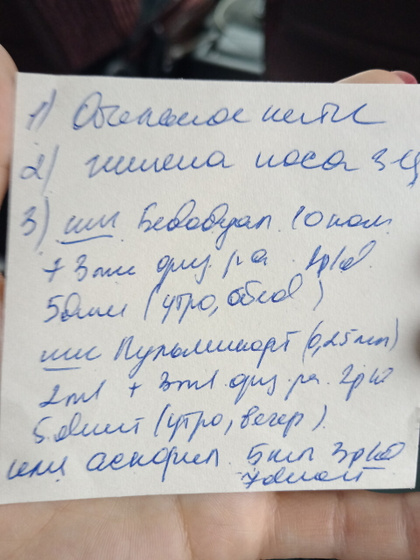 1) Обильное питье
2) гигиена носа 3-4
3) инг Беводуал 10 кап
+ 3 мл физ. р-ра 2р/d
5 дней (утро, обед)
инг Пульмикорт (0,25 мг)
2ml + 3ml физ. р-ра 2р/d
5 дней (утро, вечер).
или аскорил 5 мл 3р/d
7 дней